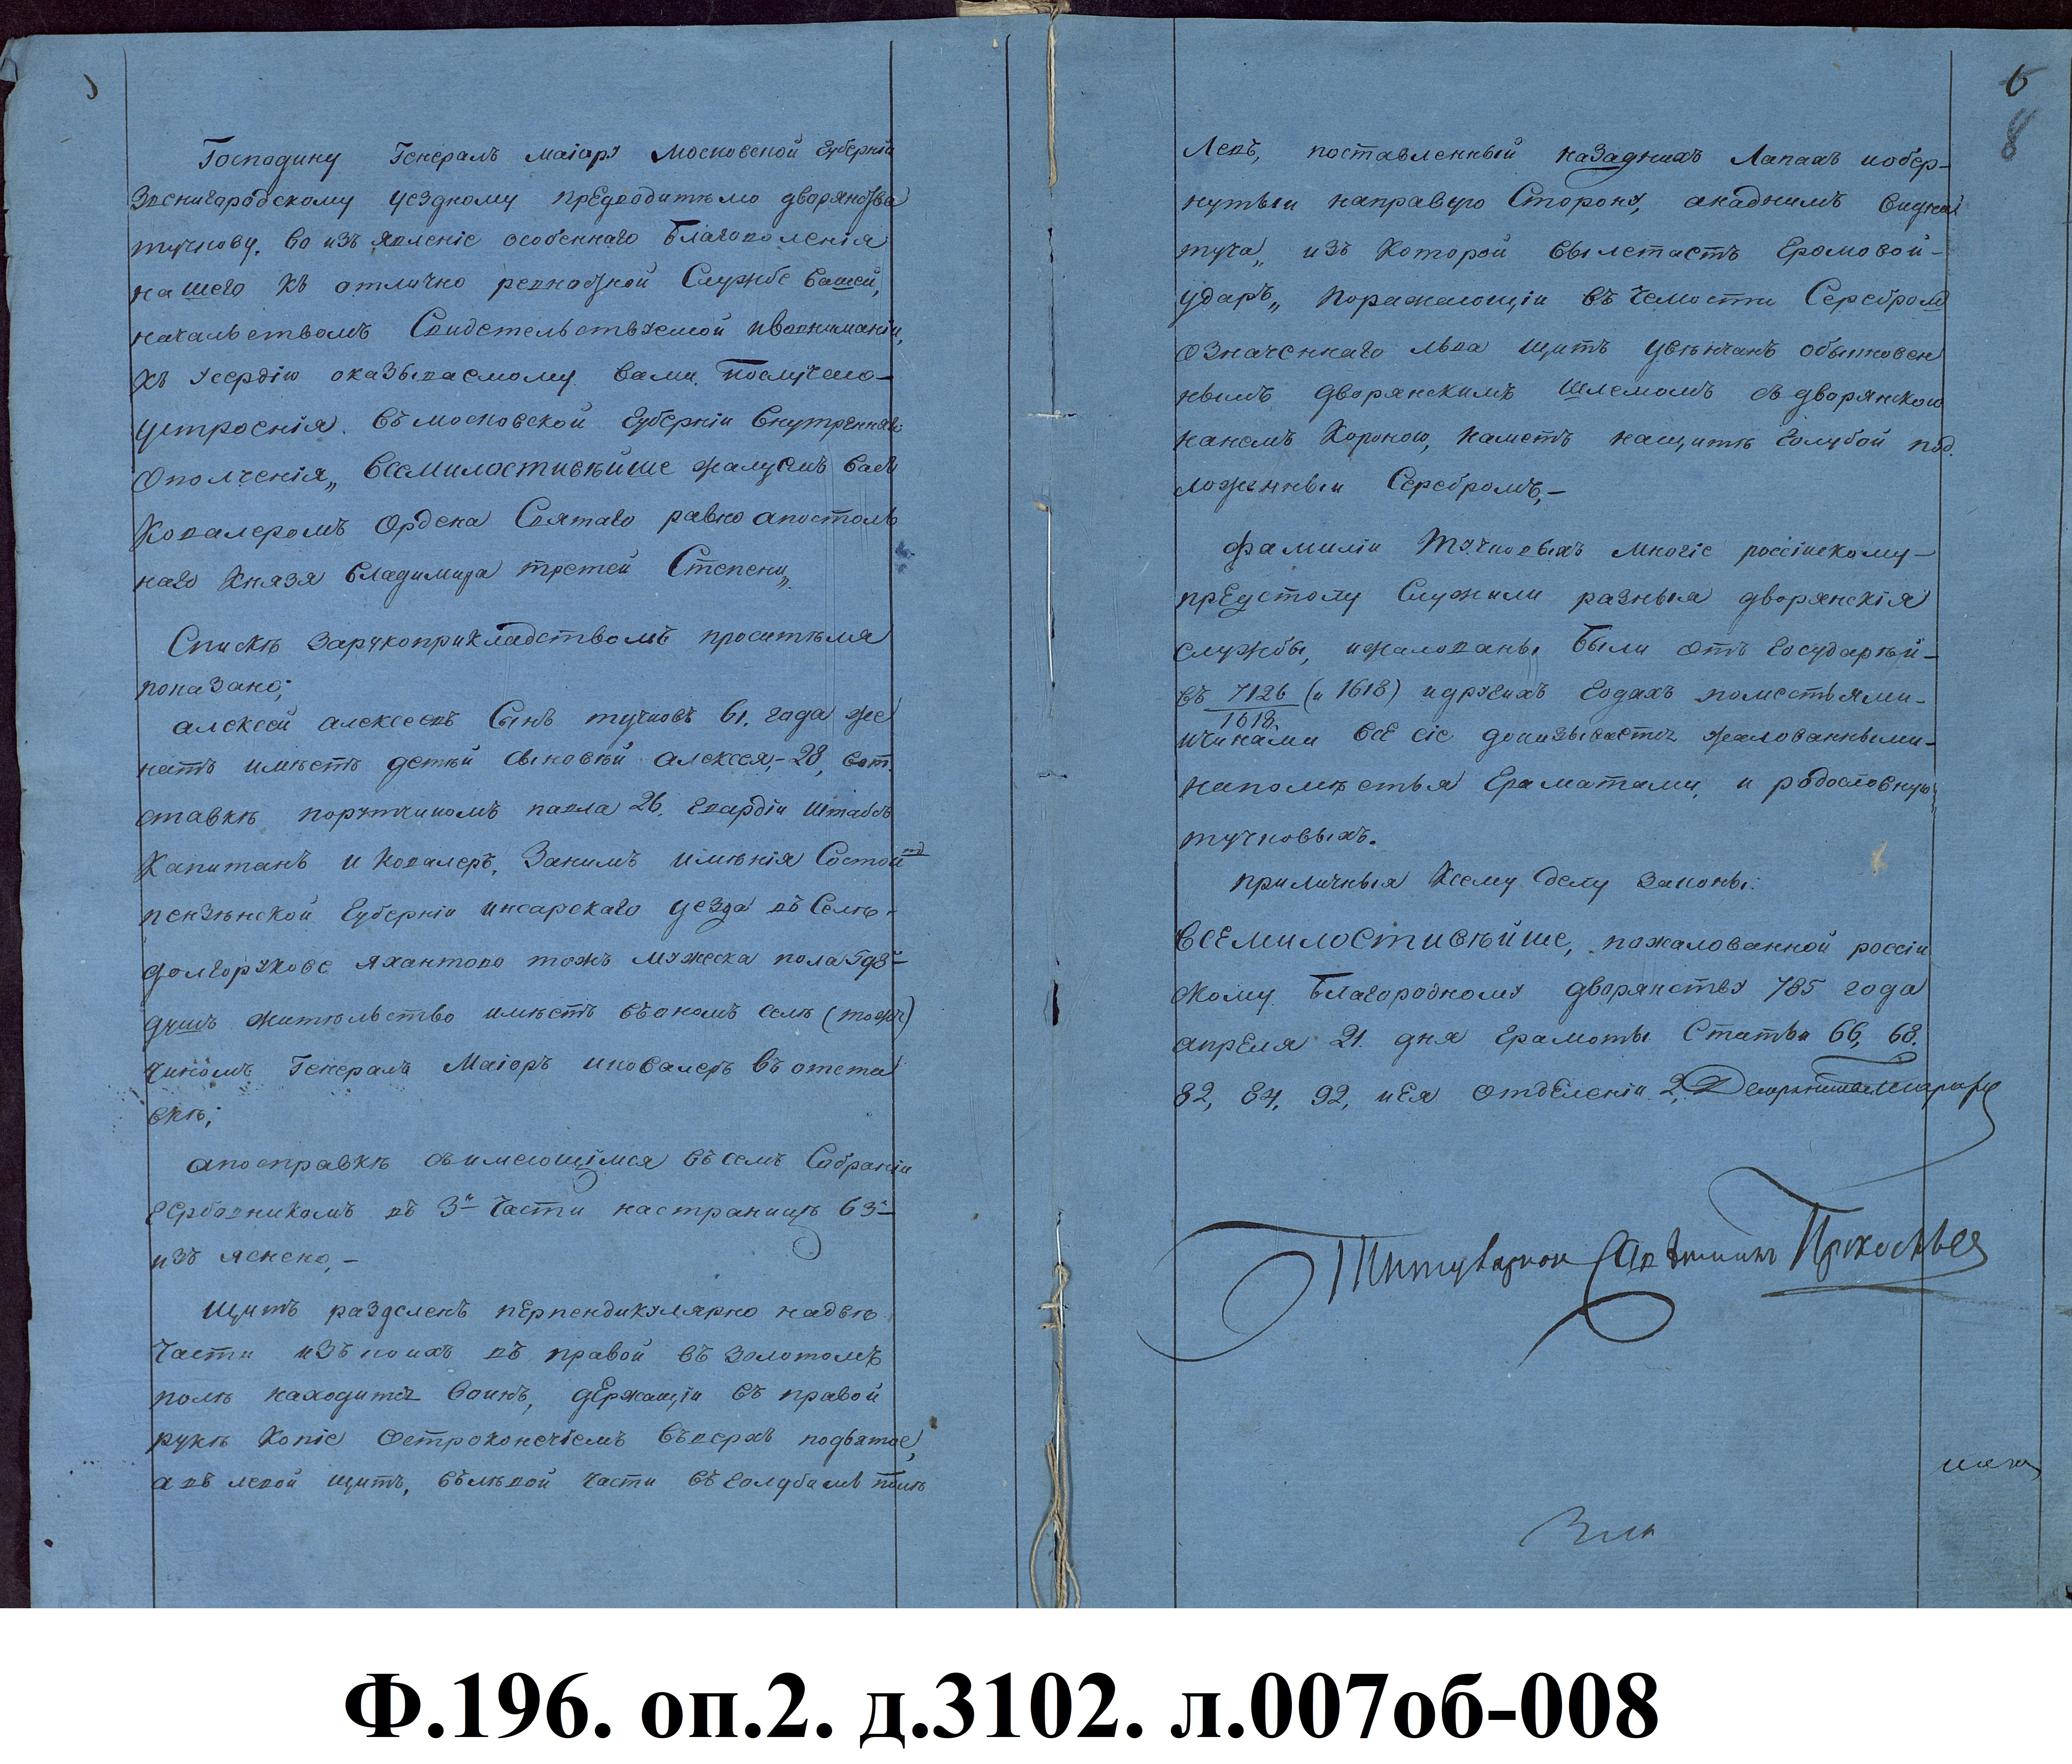 Господину Генералъ маiору Московской губернiи
Звенигородскому уездному предводителю дворянства
тучкову. Во изъ явленiе особеннаго Благоволенiя
нашего къ отлично ревностной Службе вашей,
начальствомъ Свидетельствуемой ивовниманiи,
къ усердiю оказываемому вами. Послучаю
устроенiя. въ московской губернiи внутренняго
Ополченiя„ всемилостивѣйше жалуемъ васъ
Ковалеромъ Ордена Святаго равно апостоль
наго Князя владимира третей Степени„
Спискѣ зарукоприкладствомъ просителя
показано;
алексей алексеевъ Сынъ тучковъ 61. года же
натъ имѣетъ детѣй сыновѣй алексея,- 28, вот.
ставкѣ порутчикомъ павла 26. гвардiи Штабсъ
Капитанъ и Ковалеръ, Занимъ имѣнiя Состоитъ
пензѣнской губернiи инсарскаго уезда въ Селѣ
долгоруково яхантово тожъ мужеска пола 593
душъ жительство имѣетъ въономъ селѣ (тожъ)
чиномъ Генералъ Маiоръ иковалеръ въ отста
вкѣ;
апосправкѣ симеющiмся въсемъ Собранiи
гербовникомъ въ 3й части настраницѣ 63й
изъ яснено,-
Щитъ разделенъ перпендикулярно надвѣ
части изъ коихъ въ правой въ золотомъ
полѣ находится воинъ, держащiи въ правой
рукѣ Копiе Остроконечiемъ въверхъ поднятое,
а въ левой щитъ, вълѣвой части въ голубомъ полѣ
6
8
Левъ, поставленный назаднихъ Лапахъ иобер-
нутыи направую Сторону, анаднимъ видна
туча„ изъ Которой вылетаетъ громовой-
ударъ„ Поражающiи въ челюсти Серебромъ
означеннаго льва щитъ увѣнчанъ обыкновен
нымъ дворянскимъ шлемомъ съ дворянскою
нанемъ Короною, Наметъ нащитѣ голубой под.
ложенныи Серебромъ,-
фамилiи Тучковыхъ многiе россiискому-
преустолу Служили разныя дворянскiя
службы, ижалованы были отъ государѣй-
въ 7126/1618 (и 1618) идругихъ годахъ поместьями-
ичинами всё сiе доказывается жалованными-
напомѣстья граматами, и родословную
тучковыхъ.
приличныя Ксему делу законы:
всемилостивѣйше, пожалованной россiи
скому благородному дворянству 785 года
апреля 21. дня грамоты Статьи 66, 68.
82, 84, 92, иея отделенiи 2,